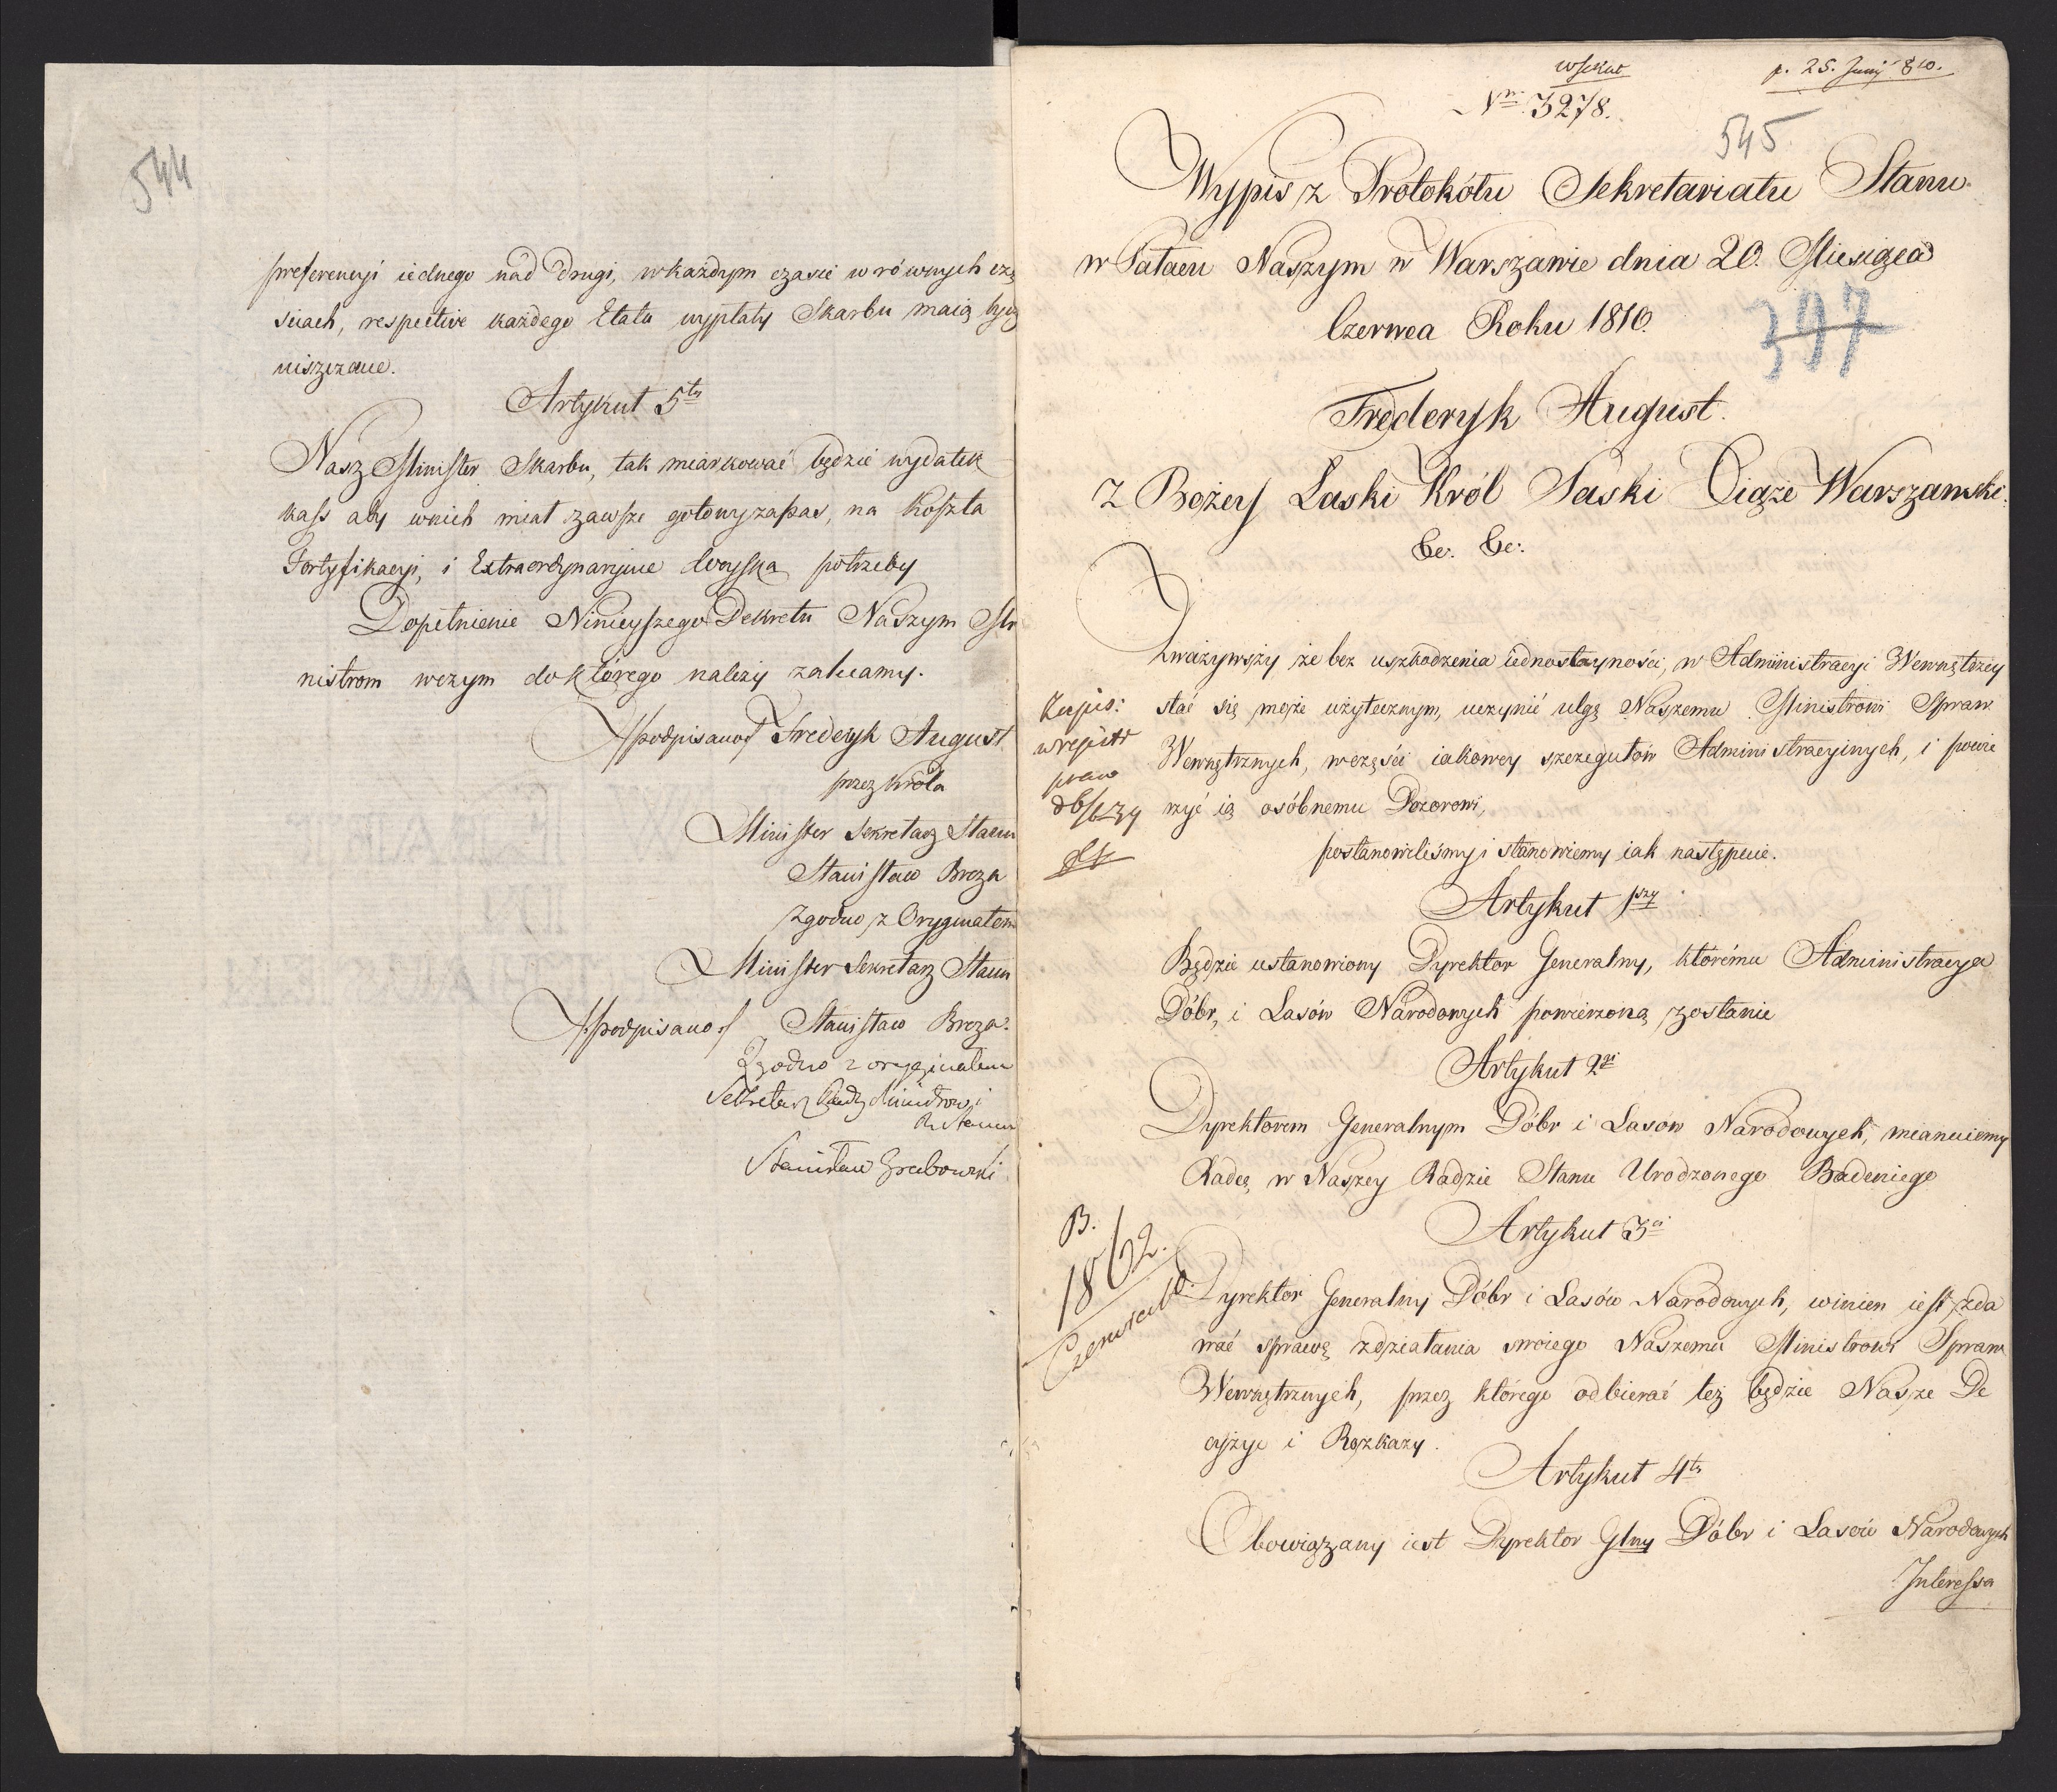 544
preferencyi iednego nad drugi, w każdym czasie w równych czę
ściach, respective każdego Etatu wypłaty Skarbu maią bydź
uiszczane.
Artykuł 5ty
Nasz Minister Skarbu, tak miarkować będzie wydatek
kass aby w nich miał zawsze gotowy zapas, na Koszta
Fortyfikacyi, i Extraordynaryine Woyska potrzeby
Dopełnienie Ninieyszego Dekretu Naszym Mi
nistrom w czym do którego należy zalecamy.
/:podpisano:/ Frederyk August
przez Króla
Minister Sekretarz Stanu
Stanisław Breza
Zgodno z Oryginałem
Minister Sekretarz Stanu
/:podpisano:/ Stanisław Breza.
Zgodno z oryginałem
Sekretarz Rady Ministrów i
R. Stanu
Stanisław Grabowski
p. 25. Juny 810.
Nro 3278.
545
Wypis z Protokółu Sekretariatu Stanu
w Pałacu Naszym w Warszawie dnia 20. Miesiąca
Czerwca Roku 1810.
397
Frederyk August.
Z Bożey Łaski Król Saski Xiąże Warszawski
&c: &c:
Zważywszy że bez uszkodzenia iednostayności, w Administracyi Wewnętrzney
stać się może użytecznym, uczynić ulgę Naszemu Ministrowi Spraw
Wewnętrznych, w części iakowey szczegułów Administracyinych, i powie
rzyć ią osóbnemu Dozorowi,
postanowiliśmy i stanowiemy iak następuie.
Artykuł 1szy
Będzie ustanowiony Dyrektor Generalny, którému Administracya
Dóbr, i Lasów Narodowych powierzoną zostanie
Artykuł 2gi
Dyrektorem Generalnym Dóbr i Lasów Narodowych, mianuiemy
Radcę w Naszey Radzie Stanu Urodzonego Badeniego
Artykuł 3ci
B.
1862.
Czerwca
Dyrektor Generalny Dóbr i Lasów Narodowych, winien iest zda
wać sprawę z działania swoiego Naszemu Ministrowi Spraw
Wewnętrznych, przez którego odbierać też będzie Nasze De
cyzye i Rozkazy.
Artykuł 4ty
Obowiązany iest Dyrektor Glny Dóbr i Lasów Narodowych
Interessa